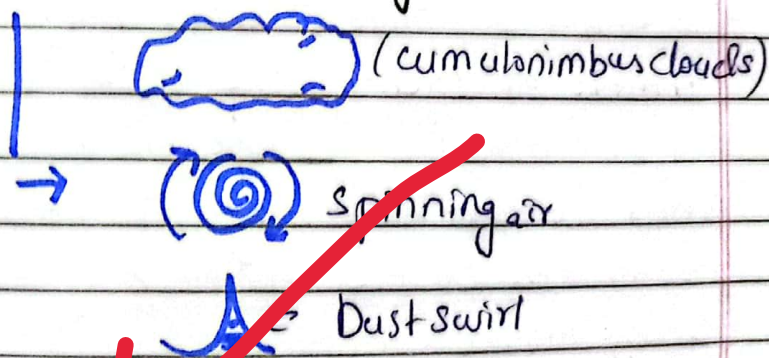 (cumulonimbus clouds)
spinning air
Dust swirl